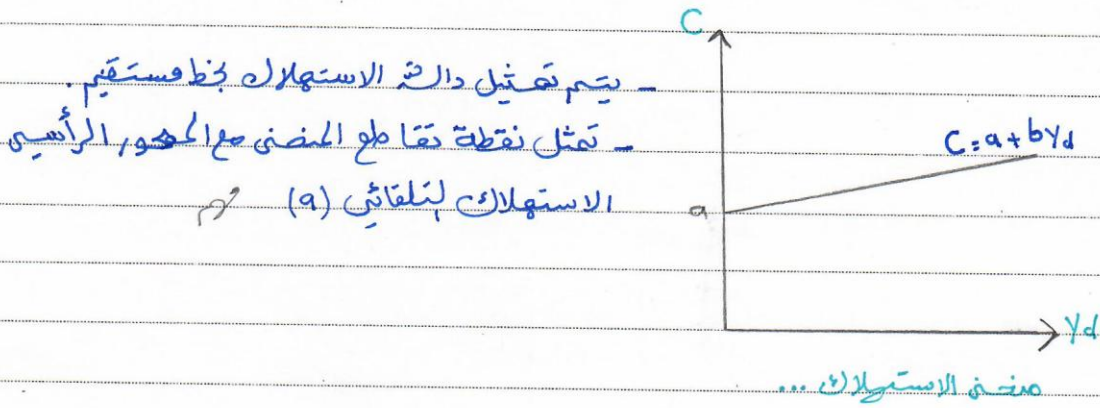 C
- يتم تمثيل دالة الاستهلاك بخط مستقيم.
- تمثل نقطة تقاطع المنحنى مع المحور الرأسي
C = a + b Yd
الاستهلاك التلقائي (a)
a
Yd
منحنى الاستهلاك ...